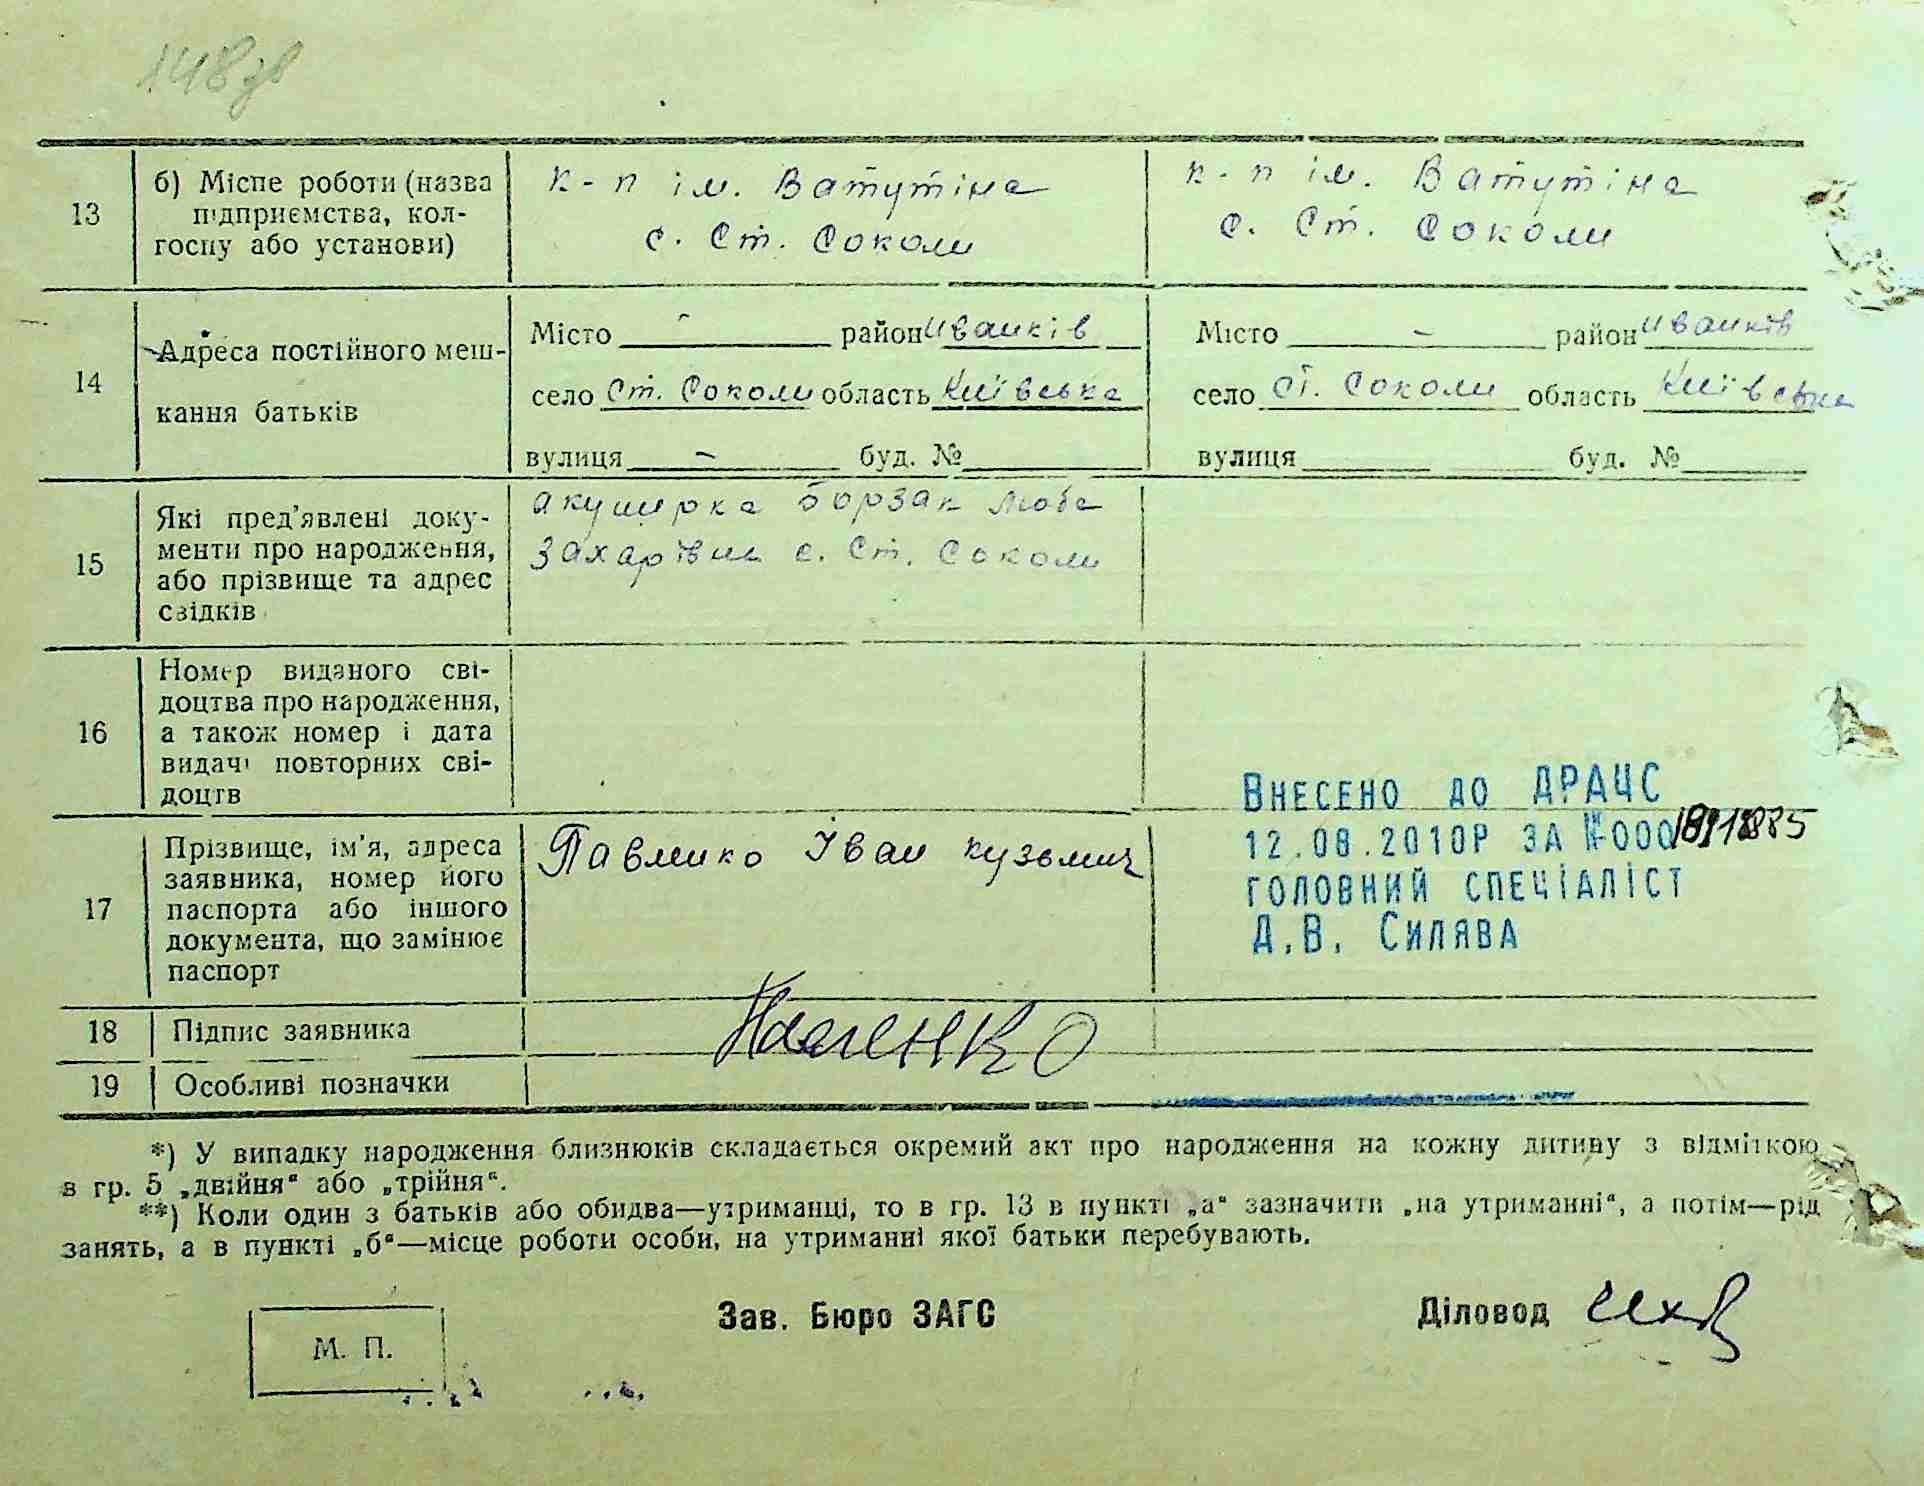 148 зв
13
б) Місце роботи (назва
підприємства, кол-
госпу або установи)
к-п ім. Ватутіна
с. Ст. Соколи
к-п ім. Ватутіна
с. Ст. Соколи
14
Адреса постійного меш-
кання батьків
Місто - район Иванків
село Ст. Соколи область Київська
вулиця - буд. №
Місто - район Иванків
село Ст. Соколи область Київська
вулиця буд. №
15
Які пред'явлені доку-
менти про народження,
або прізвище та адрес
свідків
акушерка Борзак Люба
Захарівна с. Ст. Соколи
16
Номер виданого сві-
доцтва про народження,
а також номер і дата
видачі повторних сві-
доцтв
17
Прізвище, ім'я, адреса
заявника, номер його
паспорта або іншого
документа, що замінює
паспорт
Павленко Іван Кузьмич
Внесено до ДРАЦС
12.08.2010р за №000
головний спеціаліст
Д.В. Силява
18
Підпис заявника
19
Особливі позначки
*) У випадку народження близнюків складається окремий акт про народження на кожну дитину з відміткою
в гр. 5 „двійня“ або „трійня“.
**) Коли один з батьків або обидва—утриманці, то в гр. 13 в пункті „а“ зазначити „на утриманні“, а потім—рід
занять, а в пункті „б“—місце роботи особи, на утриманні якої батьки перебувають.
М. П.
Зав. Бюро ЗАГС
Діловод